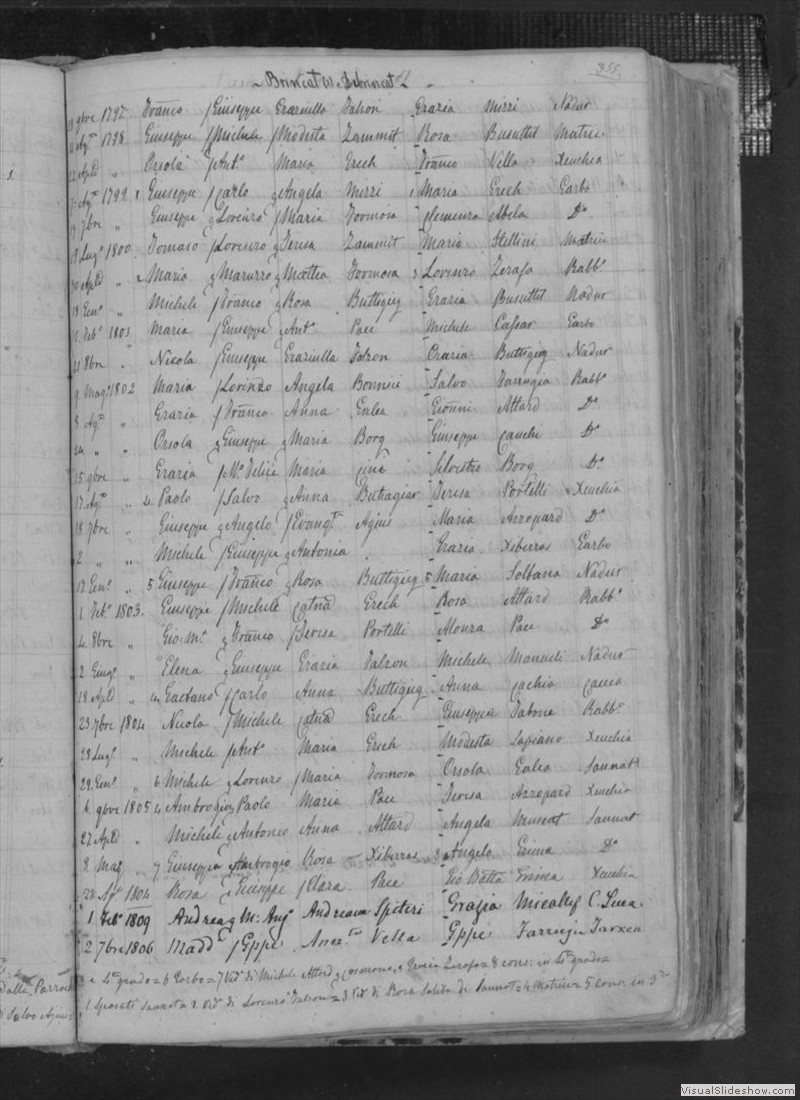 Brincat o Debrincat
355
9bre 1797 Franco Giuseppe Graziulla Falzon Grazia Mizzi Nadur
Agto 1798 Giuseppe Michele Modesta Zammit Rosa Busuttil Matrice
22 Aple " Orsola Anto Maria Grech Franco Vella Xeuchia
Agto 1799 1 Giuseppe Carlo Angela Mizzi 1 Maria Grech Garbo
7bre " Giuseppe Lorenzo Maria Formosa Clemenza Abela Do
Lugo 1800 Tomaso Lorenzo Teresa Zammit Maria Stellini Matrice
30 Aple " 2 Maria Maruzzo Mattea Formosa 3 Lorenzo Zerafa Rabbo
18 Geno " Michele Franco Rosa Buttigieg Grazia Busuttil Nadur
10 Febo 1801 Maria Giuseppe Anta Pace Michele Cassar Garbo
21 8bre " Nicola Giuseppe Graziulla Falzon Grazia Buttigieg Nadur
9 Mago 1802 Maria Lorenzo Angela Bonnici Salvo Farrugia Rabbo
8 Agto " Grazia Franco Anna Galea Gionni Attard Do
24 " " Orsola Giuseppe Maria Borg Giuseppe Cauchi Do
15 9bre " Grazia Felice Maria Silvestro Borg Do
17 Agto " 4 Paolo Salvo Anna Buttagiar Teresa Portelli Xeuchia
18 7bre " Giuseppe Angelo Evangta Agius Maria Azzopard Do
2 " " Michele Giuseppe Antonia . Grazia Xiberras Garbo
12 Geno " 5 Giuseppe Franco Rosa Buttigieg 5 Maria Solbana Nadur
1 Febo 1803. Giuseppe Michele Catna Grech Rosa Attard Rabbo
4 8bre " Gio: Ma Franco Teresa Portelli Pace Do
2 Giugo " Elena Giuseppe Grazia Falzon Michele Manueli Nadur
18 Aple " Gaetano Carlo Anna Buttigieg Anna Cachia Caccia
23 7bre 1804 Nicola Michele Catna Grech Giuseppa Tabone Rabbo
28 Lugo " Michele Anto Maria Grech Modesta Sapiano Xeuchia
29 Geno " 6 Michele Lorenzo Maria Formosa Orsola Galea Sannat
6 9bre 1805 4 Ambrogio Paolo Maria Pace Teresa Azzopard Xeuchia
27 Aple " Michele Antonio Anna Attard Angela Muscat Sannat
8 Mag " 7 Giuseppa Ambrogio Rosa Xiberras 8 Angelo Grima Do
28 Ago 1804 Rosa Giuseppe Clara Pace Gio Batta Xeuchia
1 Feb: 1809 Andrea M: Ango Andreana Spiteri Grazia Micallef C. Luca
2 7bre 1806 Madda Gppe Vella Gppe Farrugia Tarxen
4to grado = 6 Garbo = 7 Vid: di Michele Attard Grazia Zerafa = 8 cons: in 4to grado =
1 Sposati Sannat = 2 Vid: di Lorenzo Falzon = 3 Vid: di Rosa Saliba di Sannat = 4 Matrice = 5 cons: in 3zo
Dalla Parroc
di Salvo Agius
VisualSlideshow.com